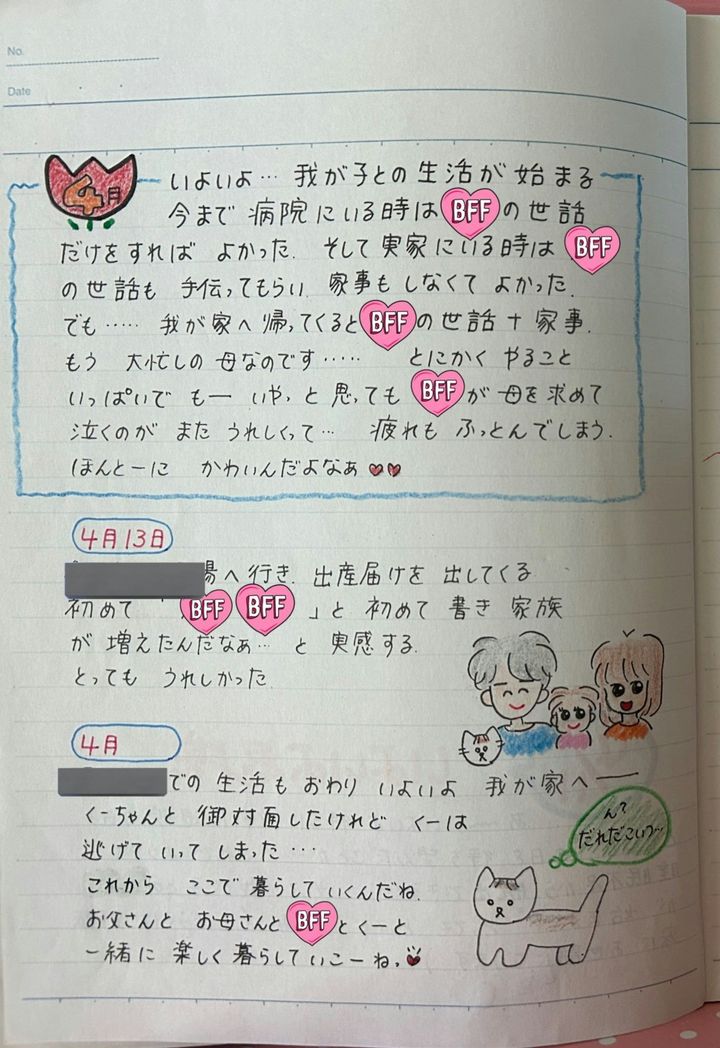 No.
Date
4月
いよいよ… 我が子との生活が始まる
今まで病院にいる時はBFFの世話
だけをすれば よかった. そして実家にいる時はBFF
の世話も 手伝ってもらい 家事もしなくてよかった.
でも…… 我が家へ帰ってくるとBFFの世話+家事.
もう 大忙しの母なのです…… とにかくやること
いっぱいで もー いやっと思ってもBFFが母を求めて
泣くのが またうれしくって… 疲れもふっとんでしまう.
ほんとーに かわいんだよなぁ
4月13日
場へ行き. 出産届けを出してくる
初めて「BFF BFF」と初めて書き 家族
が増えたんだなぁ… と 実感する.
とっても うれしかった
4月
での生活もおわり いよいよ 我が家へ──
くーちゃんと 御対面したけれど くーは
逃げていってしまった…
これから ここで暮らしていくんだね.
お父さんと お母さんとBFFとくーと
一緒に楽しく暮らしていこーね.
んて
だれだこいつ…